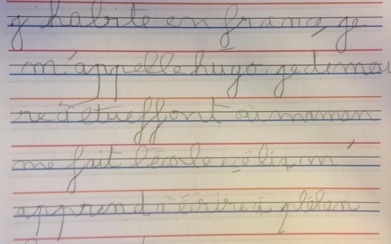 g'habite en france, ge
m'appelle hugo. ge demeu
re à étueffont où maman
me fait l'école et élix, m'
apprend à écrire à plélan